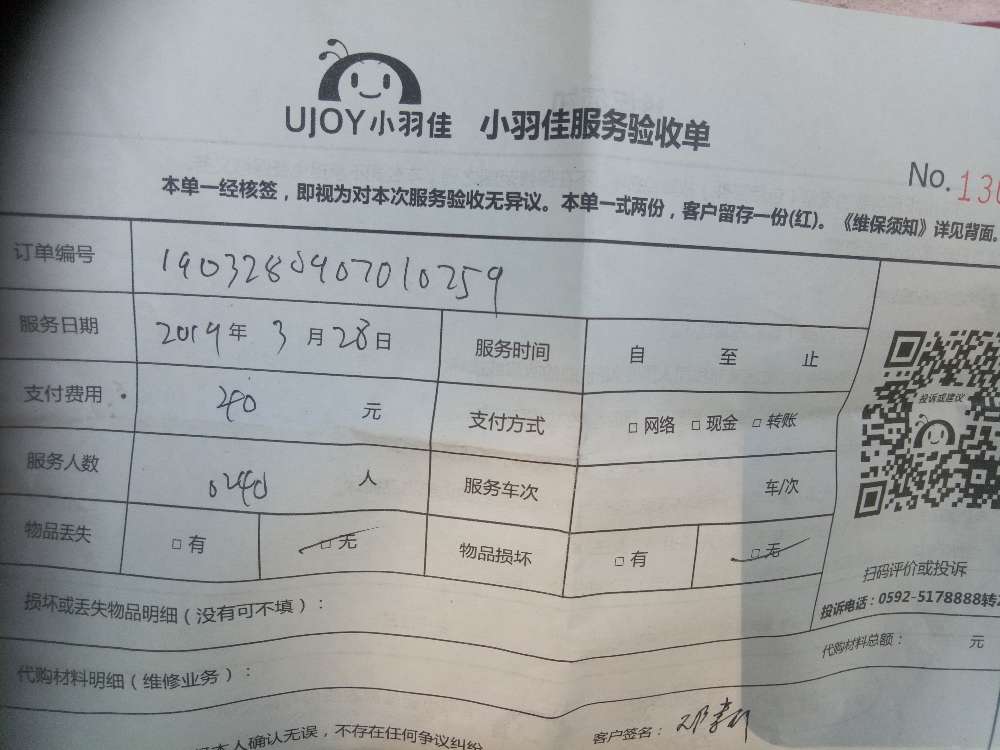 UJOY小羽佳 小羽佳服务验收单
No.130
本单一经核签，即视为对本次服务验收无异议。本单一式两份，客户留存一份(红)。《维保须知》详见背面。
订单编号 1903280907010259
服务日期 2019年 3 月 28 日 服务时间 自 至 止
支付费用 240 元 支付方式 □ 网络 □ 现金 □ 转账
投诉或建议
服务人数 0240 人 服务车次 车/次
物品丢失 □ 有 □ 无 物品损坏 □ 有 □ 无
扫码评价或投诉
损坏或丢失物品明细（没有可不填）：
投诉电话：0592-5178888转
代购材料总额： 元
代购材料明细（维修业务）：
本人确认无误，不存在任何争议纠纷
客户签名：